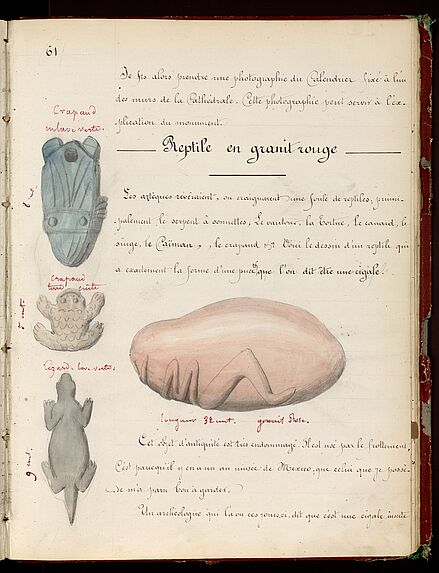 61
Je fis alors prendre une photographie du Calendrier fixé à l'un
des murs de la Cathédrale. Cette photographie peut servir à l'ex-
plication du monument.
Crapaud
en lave verte.
Reptile en granit rouge
Les aztèques révéraient, ou craignaient une foule de reptiles, princi-
palement le serpent à sonnettes, Le vautour, la tortue, le canard, le
singe, le Caïman, le crapaud &. Voici le dessin d'un reptile qui
a exactement la forme d'une puce, que l'on dit être une cigale.
crapaud
terre cuite
5 cent.
Lézard lave verte.
9 cent.
longueur 32 cent. granit Rose.
Cet objet d'antiquité est très endommagé. Il est usé par le frottement.
C'est parcequ'il y en a un au musée de Mexico, que celui que je possè-
de m'a paru bon à garder.
Un archéologue qui l'a vu ces jours ci, dit que c'est une cigale, insecte